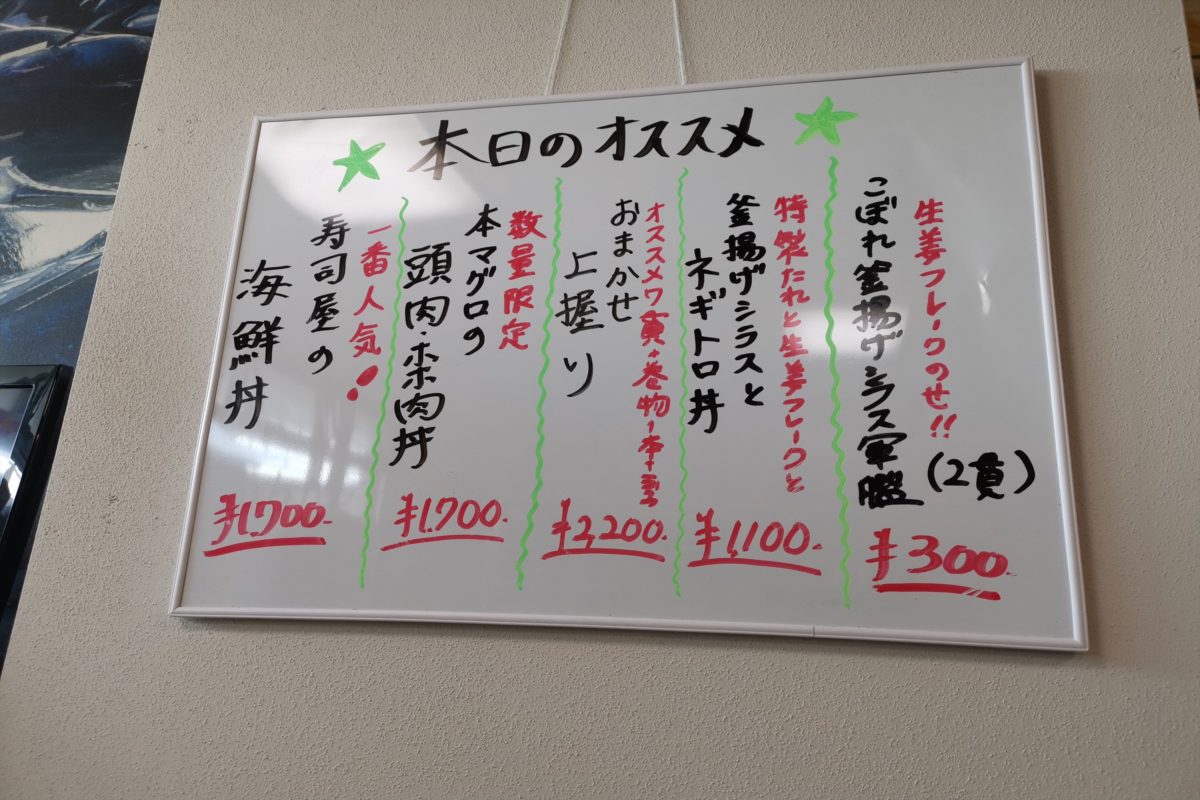 本日のオススメ
生姜フレークのせ!!
こぼれ釜揚げシラス軍艦
(2貫)
¥300.
特製たれと生姜フレークと
釜揚げシラスと
ネギトロ丼
¥1,100.
オススメ9貫+巻物1本+玉
おまかせ
上握り
¥2,200.
数量限定
本マグロの
頭肉・ホホ肉丼
¥1,700.
一番人気!
寿司屋の
海鮮丼
¥1,700.